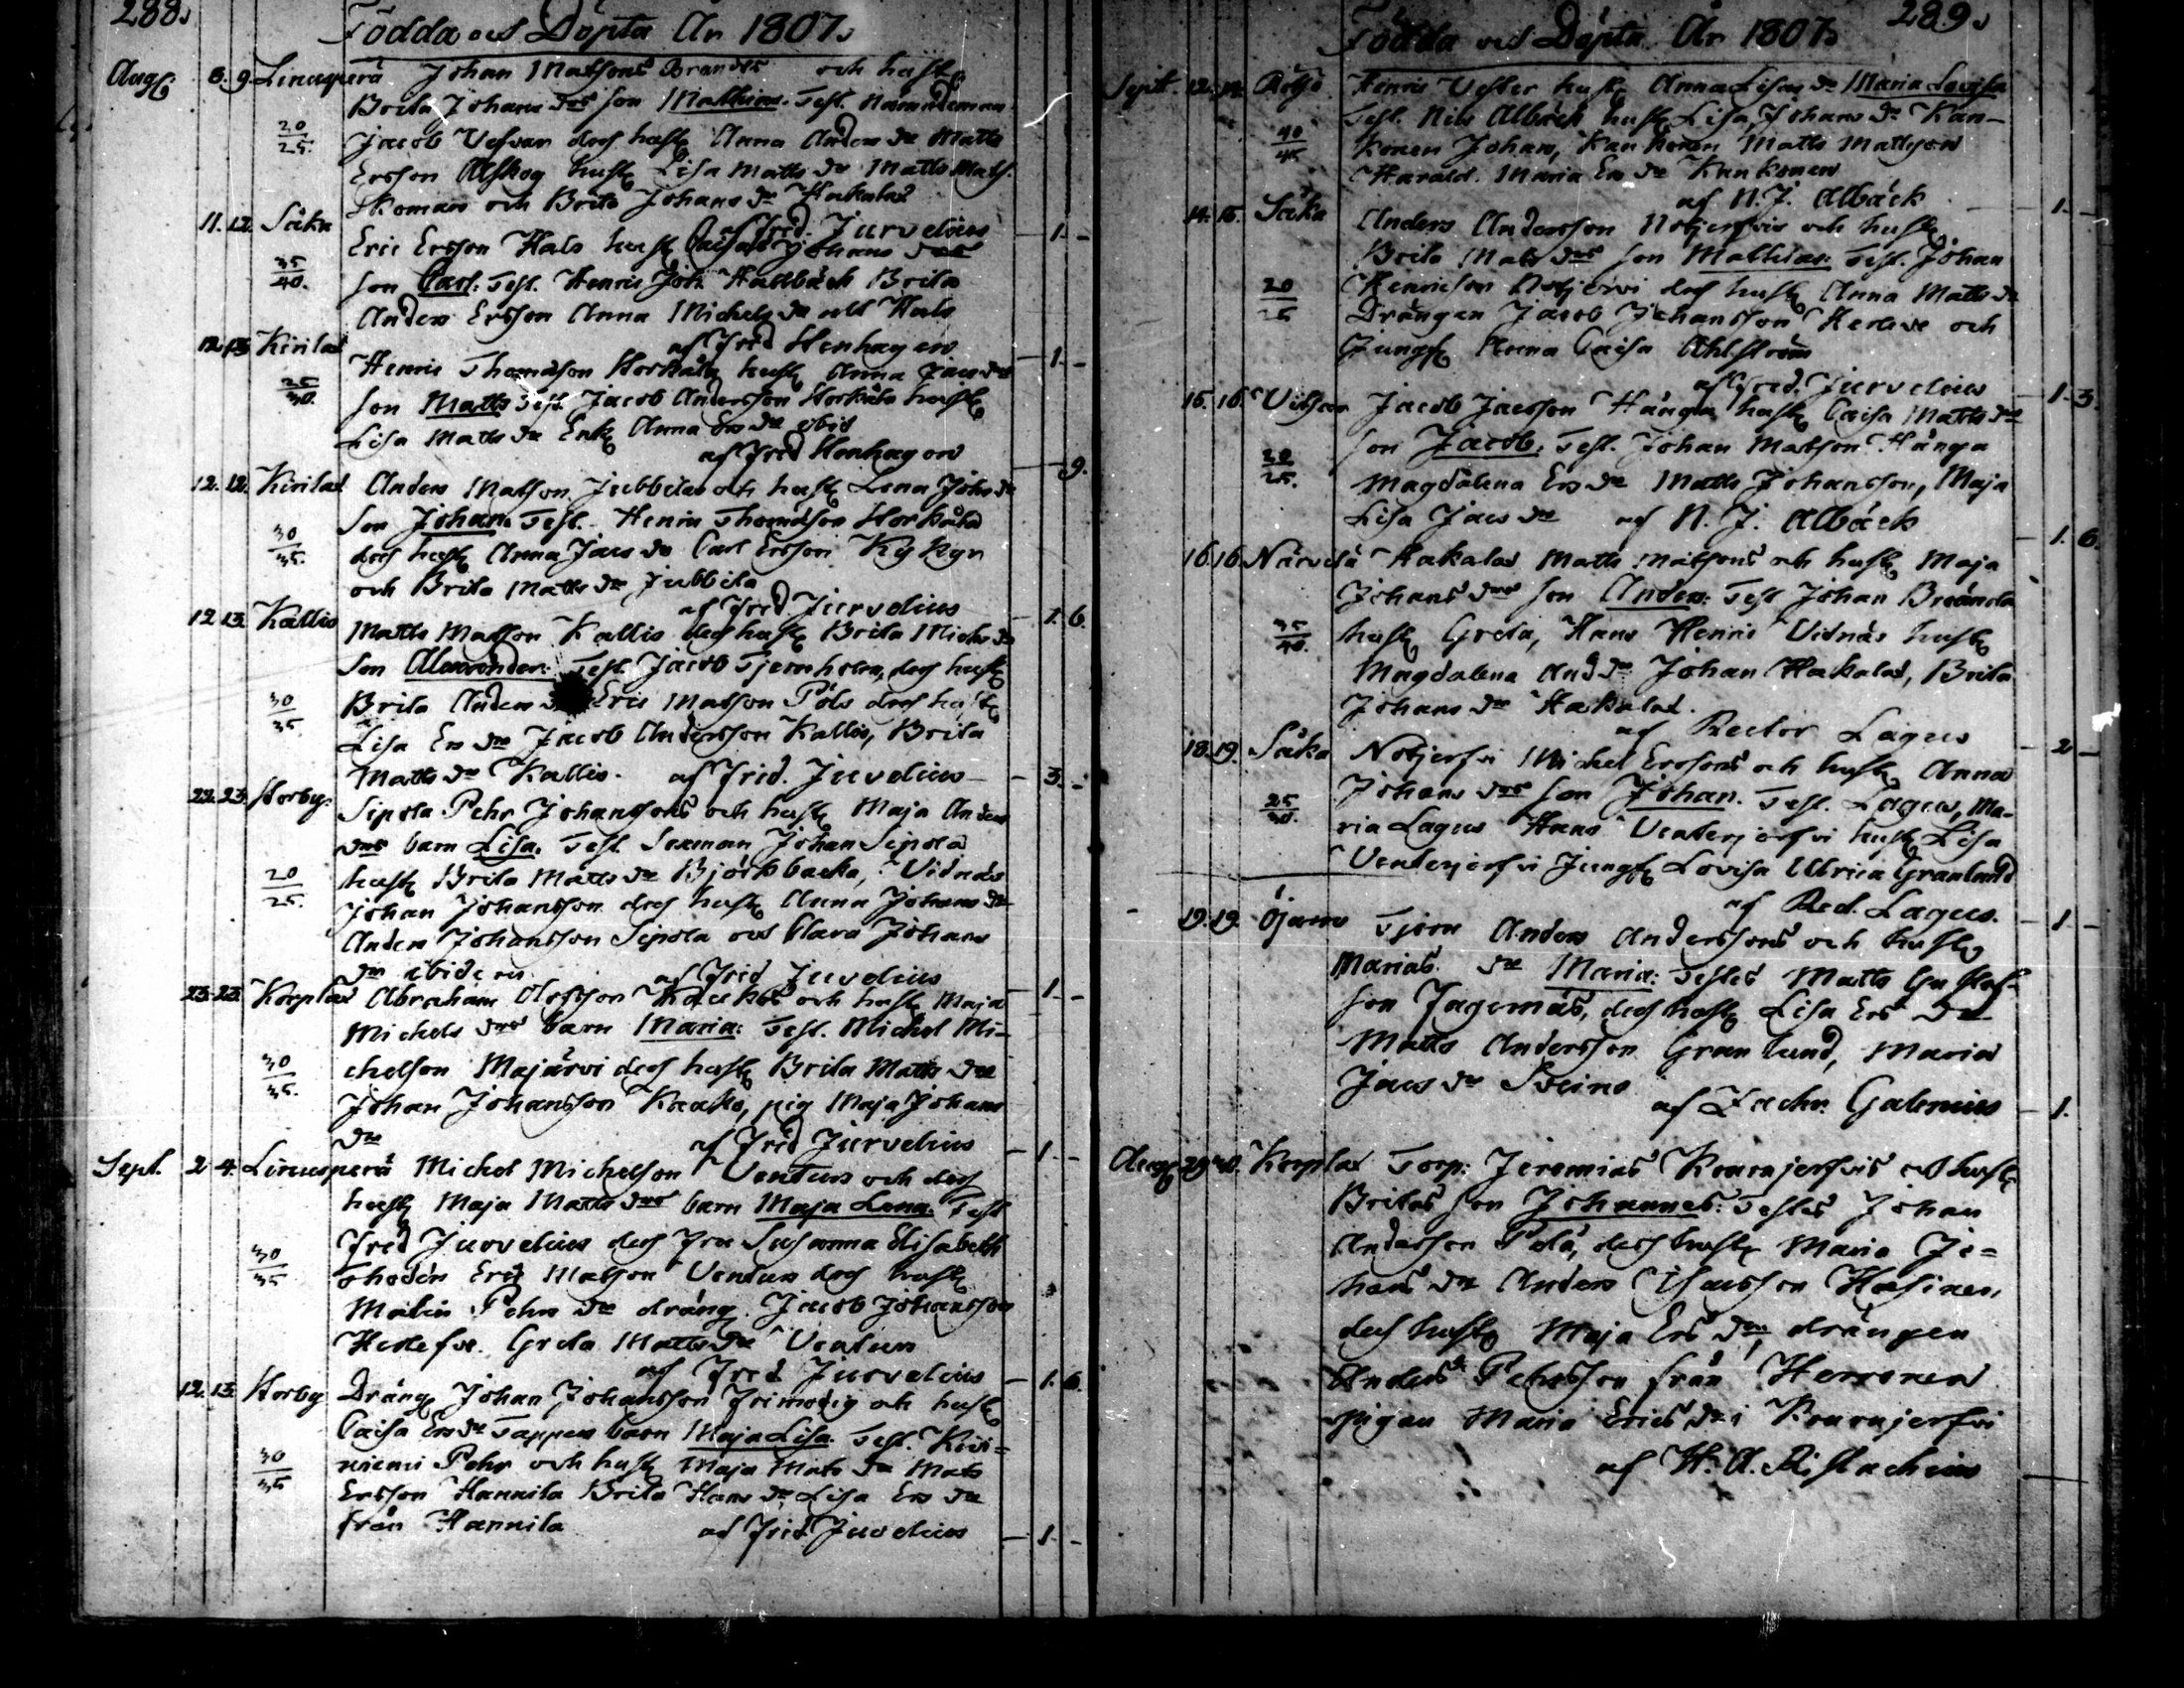 288.
Födda och Döpta År 1807.
Aug. 8. 9. Linusperä Johan Matssons Brandts och hust
Brita Johans drs son Mathias. Test. Nämndeman
20/25. Jacob Vesvar des hust Anna Anders dr Matts
Ersson Alskog hust Lisa Matts dr Matts Mats.
Skomars och Brita Johans dr Hakalax
af Frid. Jurvelius 1. -
11. 12. Såka Eric Ersson Hals hust Caisas Johans drs
35/40. son Carl. Test. Henric Joh. Hallbäck Brita
Anders Ersson Anna Michels dr och Hals
af Frid Henhagen 1. -
12. 13. Kirilax Henric Thomasson Horkåla hust Anna Jacs drs
25/30. son Matts Test. Jacob Andersson Horkåla hust
Lisa Matts dr Enk Anna Ers dr ibid
af Frid Henhagen - 9.
12. 12. Kirilax Anders Matsson Jubbila och hust Lena Johs dr
30/35. son Johan. Test. Henric Thomasson Horkåla
des hust Anna Jacs dr Carl Ersson Kykyri
och Brita Matts dr Jubbila
af Frid. Jurvelius 1. 6.
12. 13. Kallis Matts Matsson Kallis des hust Brita Michs dr
son Alexander. Test. Jacob Tjernholm, des hust
30/35. Brita Anders Eric Matsson Pöls des hust
Lisa Ers dr Jacob Andersson Kallis, Brita
Matts dr Kallis. af Frid. Juvelius 3. -
22. 23. Horby. Sipola Pehr Johanssons och hust Maja Anders
drs barn Lisa. Test. Sexman Johan Sipola
20/25. hust Brita Matts dr Björkbacka, Vidnäs
Johan Johansson des hust Anna Johans dr
Anders Johansson Sipola och Clara Johans
dr ibidem. af Frid Juvelius 1. -
23. 23. Korplax Abraham Olofsson Kaakos och hust Maja
Michels drs barn Maria: Test. Michel Mi-
30/35. chelson Majärvi des hust Brita Matts dr
Johan Johansson Kaako, pig Maja Johans
dr af Frid Jurvelius 1. -
Sept. 2. 4. Linusperä Michel Michelson Ventus och des
hust Maja Matts drs barn Maja Lena. Test
Frid Jurvelius des Fru Susanna Elisabeth
30/35 Thodén Eric Matson Ventus des hust
Malin Pehrs dr dräng Jacob Johansson
Herlefve. Greta Matts dr Ventus
af Frid Jurvelius 1. 6.
12. 13. Horby Dräng Johan Johansson Frimodig och hust
Caisa Ers dr Tappers barn Maja Lisa. Test. Kivi-
30/35 niemi Pehr och hust Maja Mats dr Mats
Ersson Hannila Brita Hans dr Lisa Ers dr
från Hannila af Frid. Juvelius 1. -
289.
Födda och Döpta År 1807.
Sept. 12. 14. Henric Vester hust Anna Lisas dr Maria Lovisa
Test. Nils Albäck hust Lisa, Johans dr Kan-
40/45 konen Johan, Kankonen Matts Mattsson
Harald. Maria Ers dr Kankonen
af N. J. Albäck 1. -
14. 15. Såka Anders Andersson Notjerfvis och hust
Brita Mats drs son Mathias: Test. Johan
20/25 Henricson Notjervi des hust Anna Matts dr
Drängen Jacob Johansson Herleve och
Jungf Anna Caisa Ahlström
af Frid. Jurvelius 1. 3.
15. 16. Vitsar Jacob Jacsson Hänga hust Caisa Matts drs
20/25. son Jacob: Test. Johan Matson Hänga
Magdalena Ers dr Matts Johansson, Maja
Lisa Jacs dr af N. J. Albäck 1. 6.
16. 16. Närvilä Hakalax Matts Matsons och hust Maja
Johans drs son Anders: Test Johan Brännla
35/40. hust Greta, Hans Henric Vidnäs hust
Magdalena And dr Johan Hakalax, Brita
Johans dr Hakalax.
af Rector Lagus 2 -
18. 19. Såka Notjerfvi Michel Erssons och hust Anna
Johans drs son Johan. Test. Lagus, Ma-
25/30. ria Lagus Hans Venterjerfvi hust Lisa
Venterjerfvi Jungf Lovisa Ulrica Granlund
af Rect. Lagus. 1 -
19. 19. Öjamo Tjern Anders Anderssons och hust
Marias dr Maria: Testes Matts Gustaf-
son Jagenäs, des hust Lisa Ers dr
Matts Andersson Granlund, Maria
Jacs dr Sveins
af Zachr. Galenius 1.
Aug. 29. 30. Korplax Torp: Jeremias Kourujerfvis och hust
Britas son Johannes: Testes Johan
Andersson Pelå, des hust Maria Jo=
hans dr Anders Isacsson Hasinen,
des hust Maja Ers dr, drängen
Anders Pehrsson från Herronen
pigan Maria Erics dr i Kourujerfvi
af H. A. Ristachius